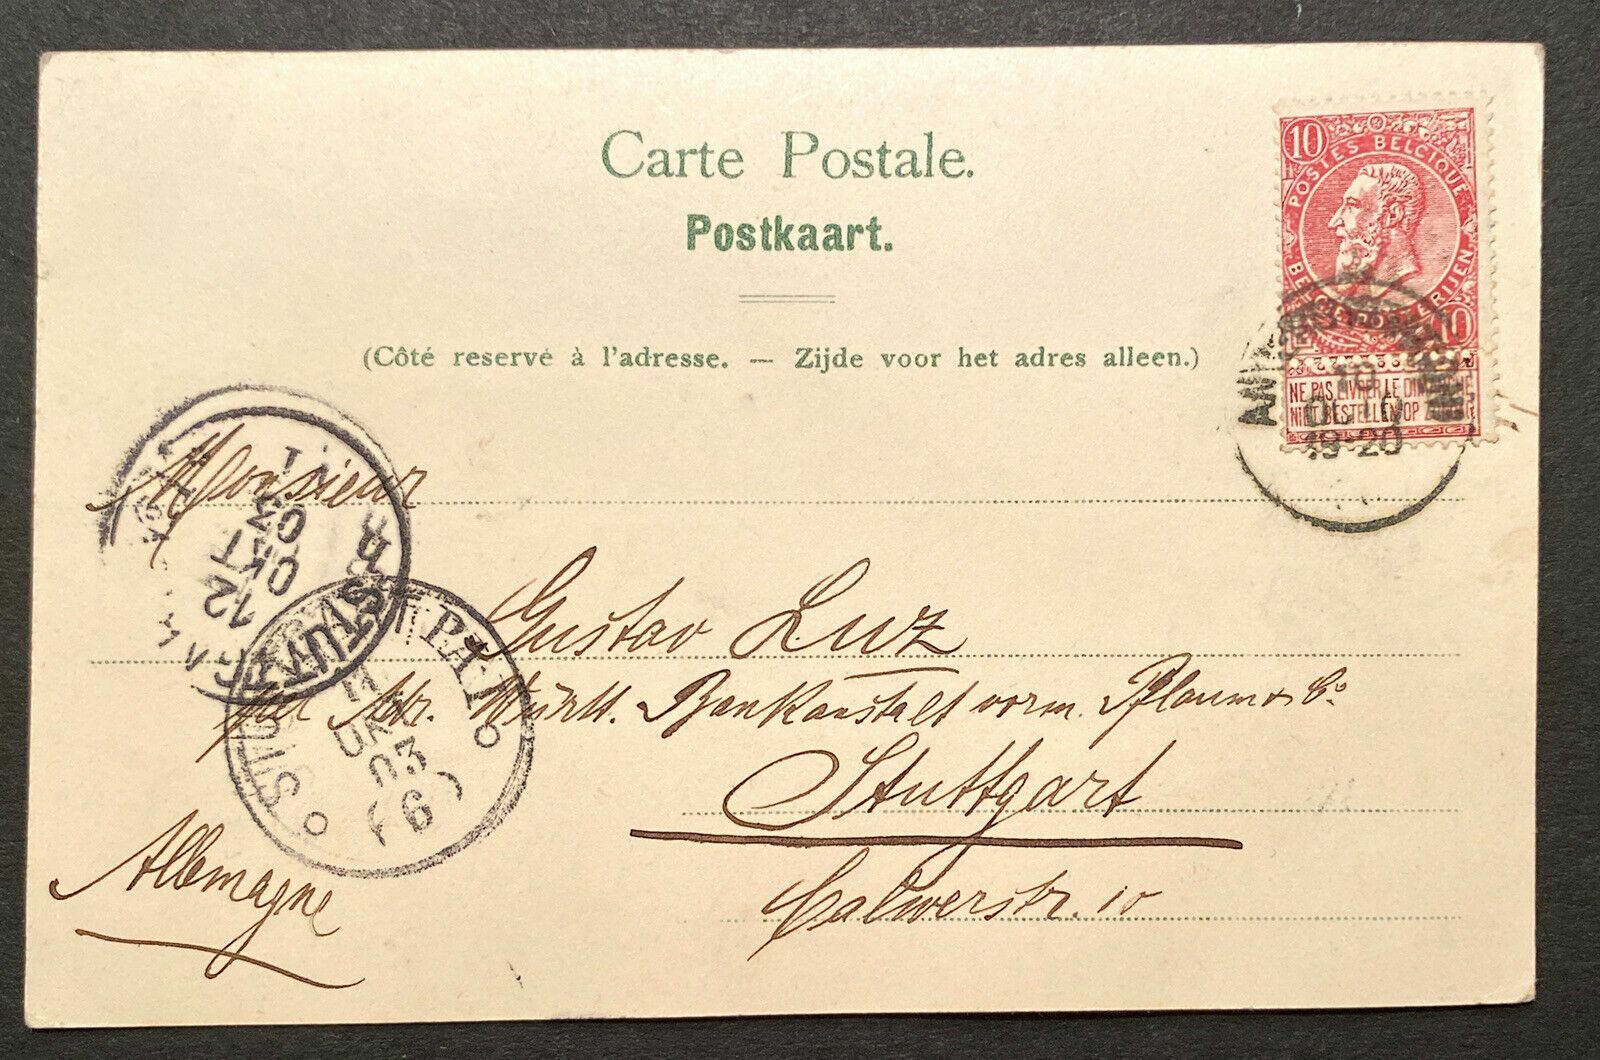 Carte Postale.
Postkaart.
(Côté reservé à l'adresse. — Zijde voor het adres alleen.)
10
POSTES BELGIQUE
BELGIE POSTERIJEN
10
NE PAS LIVRER LE DIMANCHE
NIET BESTELLEN OP ZONDAG
18-20
Monsieur
Gustav Luz
Adr. Württ. Bankanstalt vorm. Pflaum & Co
Stuttgart
Calwerstr. 10
Allemagne
12
OKT
03
1
STUTTGART P.A.1
11
OKT
03
(6)